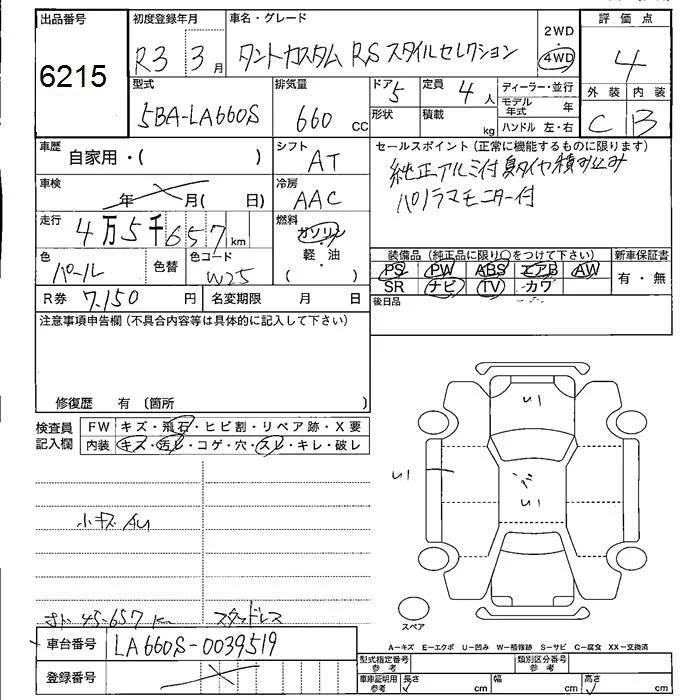 出品番号 初度登録年月 車名・グレード 2WD 評価点
6215 R3 3月 タントカスタム RS スタイルセレクション 4WD 4
型式 排気量 ドア 5 定員 4人 ディーラー・並行 外装 内装
5BA-LA660S 660cc 形状 積載 kg モデル年式 年 C B
ハンドル 左・右
車歴 自家用・( ) シフト AT セールスポイント(正常に機能するものに限ります)
純正アルミ付 夏タイヤ積み込み
車検 年 月( 日) 冷房 AAC パノラマモニター付
走行 4万5千657km 燃料 ガソリン
軽・油
( )
色 パール 色替 色コード W25 装備品(純正品に限り○をつけて下さい) 新車保証書
PS PW ABS エアB AW 有・無
SR ナビ TV カワ
R券 7,150円 名変期限 月 日 後日品
注意事項申告欄(不具合内容等は具体的に記入して下さい)
修復歴 有 (箇所 )
検査員記入欄 FW キズ・飛石・ヒビ割・リペア跡・X要
内装 キズ・汚レ・コゲ・穴・スレ・キレ・破レ
いい
いい
いい
小キズ AU
45-657 km スタッドレス
スペア
車台番号 LA660S-0039519
A-キズ E-エクボ U-凹み W-補修跡 S-サビ C-腐食 XX-交換済
登録番号 型式指定番号 参考 類別区分番号 参考
車庫証明用 参考 長さ cm 幅 cm 高さ cm